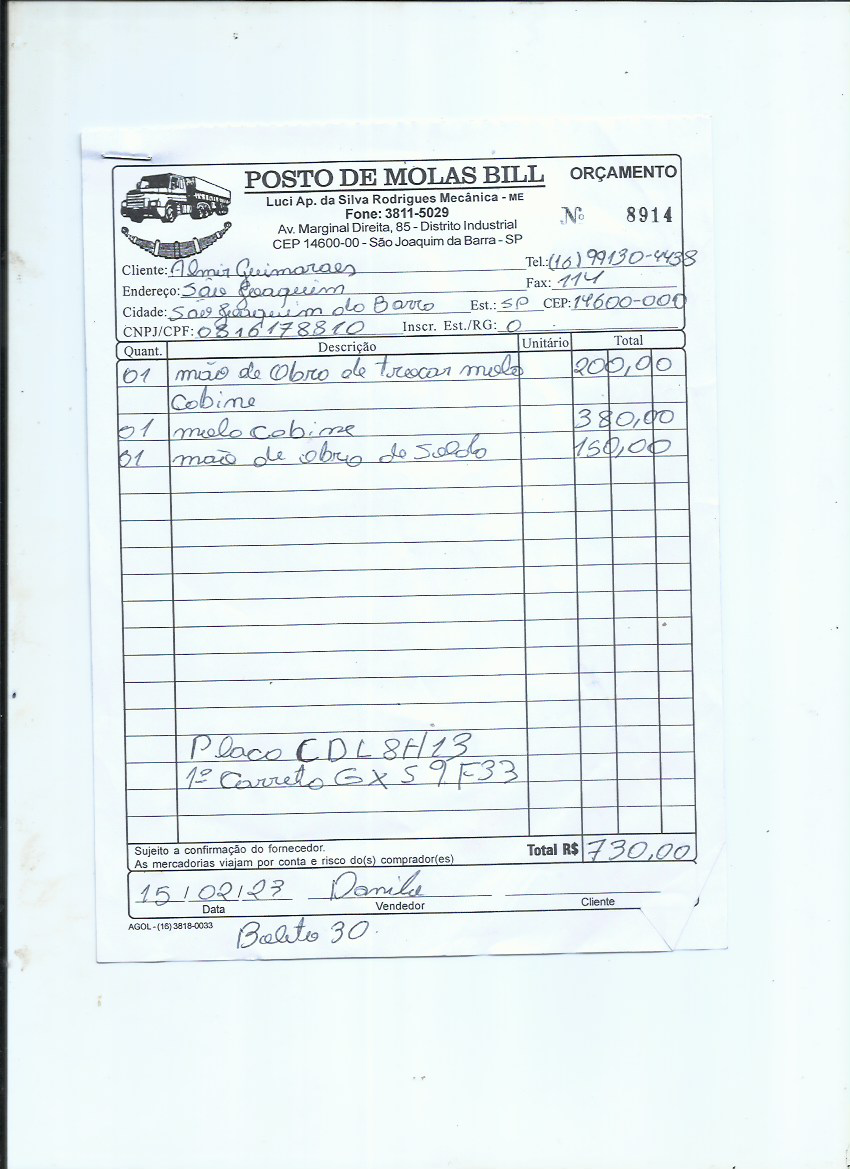 POSTO DE MOLAS BILL
ORÇAMENTO
Luci Ap. da Silva Rodrigues Mecânica - ME
Fone: 3811-5029
Av. Marginal Direita, 85 - Distrito Industrial
CEP 14600-00 - São Joaquim da Barra - SP
Nº 8914
Cliente: Almir Guimaraes Tel.: (16) 99130-4438
Endereço: São Joaquim Fax: 114
Cidade: São Joaquim da Barra Est.: SP CEP: 14600-000
CNPJ/CPF: 0816178810 Inscr. Est./RG: 0
Quant. Descrição Unitário Total
01 mão de Obra de trocar mola 200,00
Cabine
01 mola Cabine 380,00
01 mão de obra de Solda 150,00
Placa CDL8H13
1º Carreta GXS9F33
Sujeito a confirmação do fornecedor.
As mercadorias viajam por conta e risco do(s) comprador(es)
Total R$ 730,00
15/02/23 Danila
Data Vendedor Cliente
AGOL - (16) 3818-0033
Boleto 30